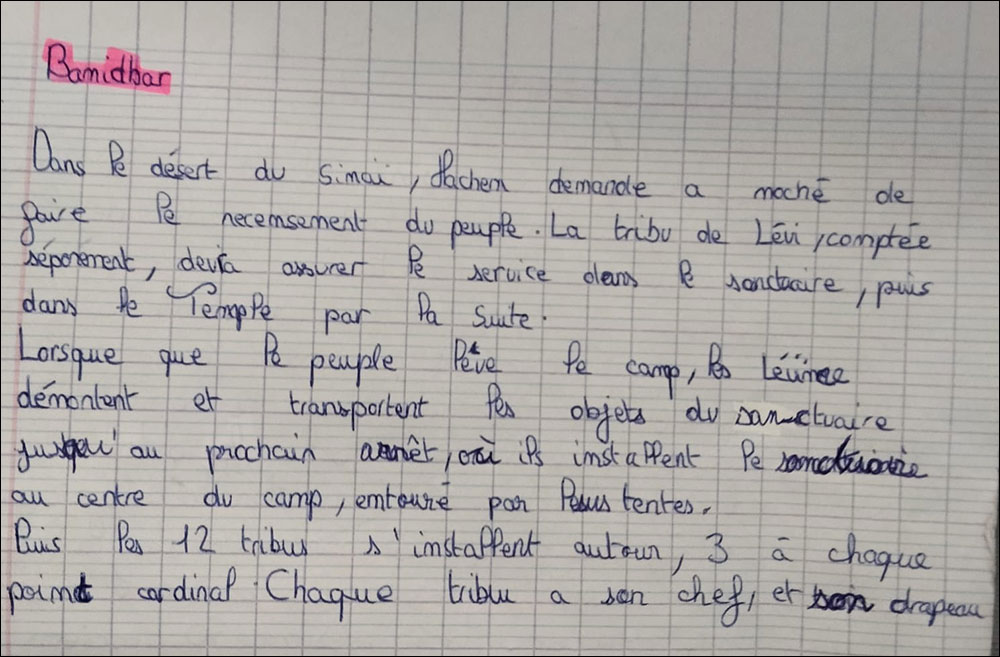 Bamidbar
Dans le désert du Simaï, Hachem demande a moché de
faire le recemsement du peuple. La tribu de Lévi, comptée
séporément, devra assurer le service dans le sanctuaire, puis
dans le Temple par la suite.
Lorsque que le peuple lève le camp, les
démontent et transportent les objets du sanctuaire
jusqu'au prochain arrêt, où ils installent le sanctuaire
au centre du camp, emtouré par leurs tentes.
Puis les 12 tribus s'installent autour, 3 à chaque
point cardinal. Chaque tribu a son chef, et son drapeau